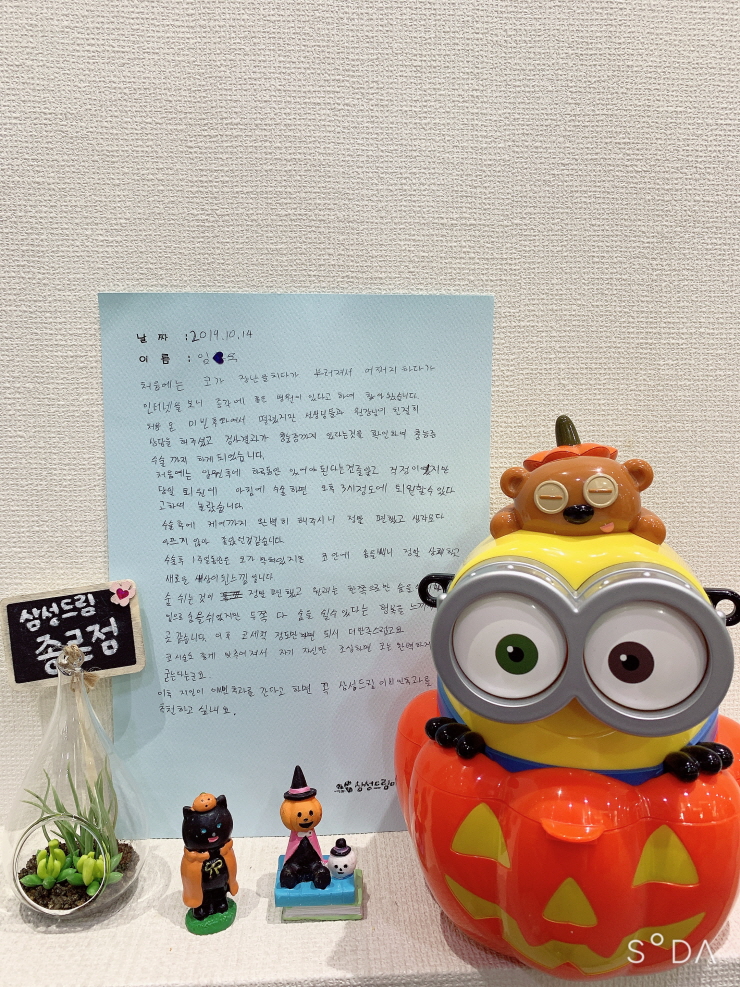 날 짜 : 2019.10.14
이 름 : 임 옥
처음에는 코가 장난을치다가 부러져서 어쩌지 하다가
인터넷을 보니 종각에 좋은 병원이 있다고 하여 찾아왔습니다.
처음 온 이비인후과여서 떨렸지만 선생님들과 원장님이 친절히
상담을 해주셨고 검사결과가 축농증까지 있다는것을 확인하여 축농증
수술 까지 하게 되었습니다.
처음에는 입원후에 하루동안 있어야 된다는건줄알고 걱정이였지만
당일 퇴원에 아침에 수술하면 오후 3시정도에 퇴원할수있다
고하여 놀랐습니다.
수술후에 케어까지 완벽히 해주시니 정말 편했고 생각보다
아프지 않아 좋았던것같습니다.
수술후 1주일동안은 코가 막혀있지만 코안에 솜을빼니 정말 상쾌하고
새로운 세상이된느낌 입니다
숨 쉬는것이 정말 편했고 원래는 한쪽으로만 숨을
숨을쉬었지만 두쪽 다 숨을 쉴수있다는 행복을 느끼
것 같습니다. 이후 코세척 정도만 하면 되서 더만족스럽고요
코 시술도 좋게 맞추어져서 자기 자신만 조심하면 코는 완벽하게
굳는다는군요.
이후 지인이 이비인후과를 간다고 하면 꼭 삼성드림 이비인후과를
추천하고 싶네요.
삼성드림이
삼성드림
종로점
SODA